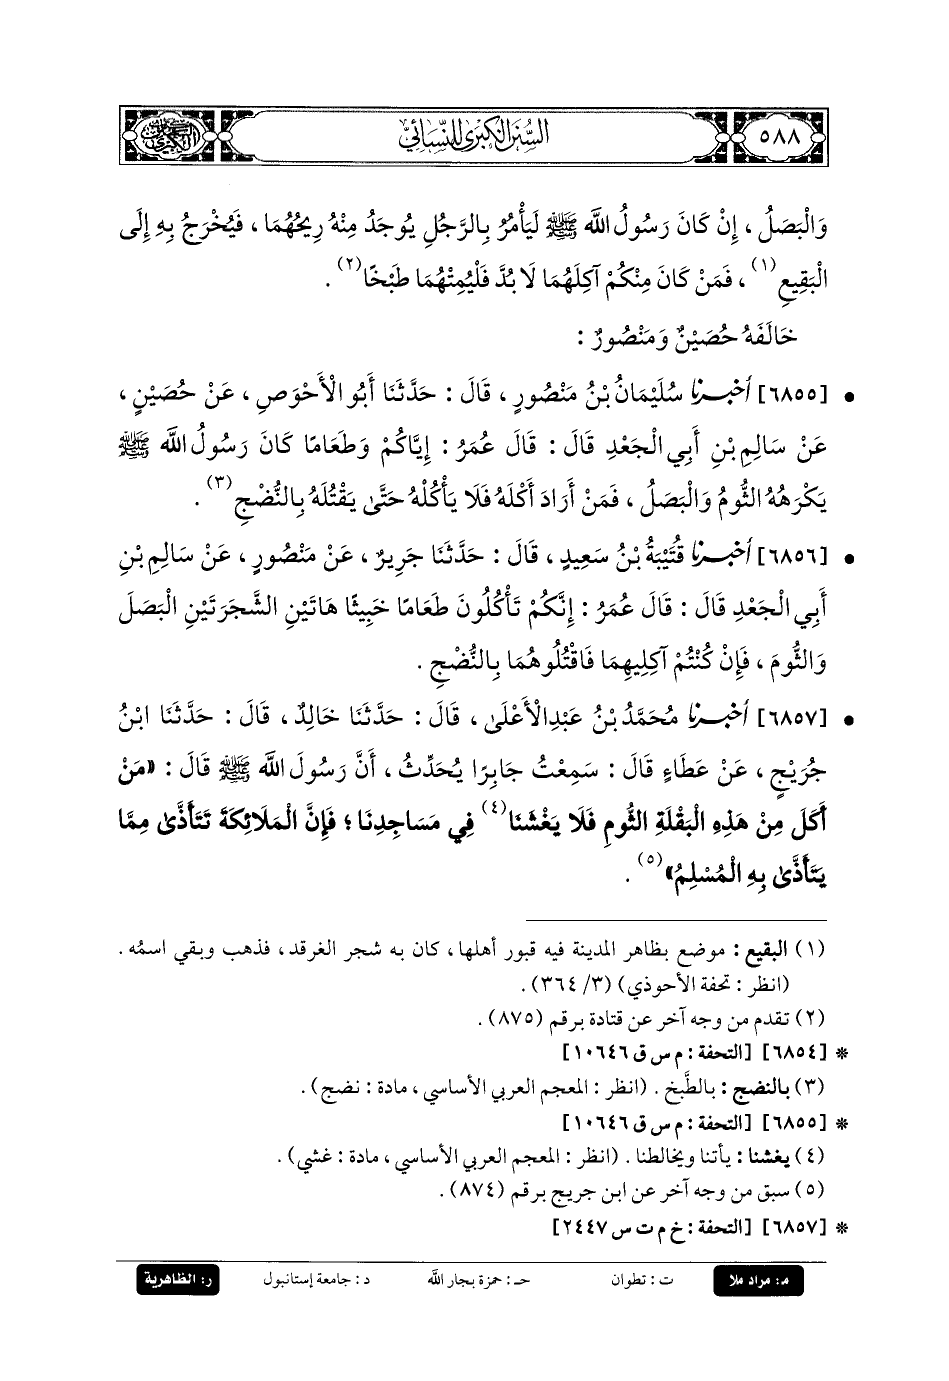 ٥٨٨
السنن الكبرى للنسائي
وَالْبَصَلُ ، إِنْ كَانَ رَسُولُ اللَّه ﷺ لَيَأْمُرُ بِالرَّجُلِ يُوجَدُ مِنْهُ رِيحُهُمَا ، فَيُخْرَجُ بِهِ إِلَى
الْبَقِيعِ(١) ، فَمَنْ كَانَ مِنْكُمْ آكِلَهُمَا لَا بُدَّ فَلْيُمِتْهُمَا طَبْخًا(٢) .
خَالَفَهُ حُصَيْنٌ وَمَنْصُورٌ :
• [٦٨٥٥] أخبرنا سُلَيْمَانُ بْنُ مَنْصُورٍ ، قَالَ : حَدَّثَنَا أَبُو الْأَحْوَصِ ، عَنْ حُصَيْنٍ ،
عَنْ سَالِمِ بْنِ أَبِي الْجَعْدِ قَالَ : قَالَ عُمَرُ : إِيَّاكُمْ وَطَعَامًا كَانَ رَسُولُ اللَّه ﷺ
يَكْرَهُهُ الثُّومُ وَالْبَصَلُ ، فَمَنْ أَرَادَ أَكْلَهُ فَلَا يَأْكُلْهُ حَتَّى يَقْتُلَهُ بِالنُّضْجِ(٣) .
• [٦٨٥٦] أخبرنا قُتَيْبَةُ بْنُ سَعِيدٍ ، قَالَ : حَدَّثَنَا جَرِيرٌ ، عَنْ مَنْصُورٍ ، عَنْ سَالِمِ بْنِ
أَبِي الْجَعْدِ قَالَ : قَالَ عُمَرُ : إِنَّكُمْ تَأْكُلُونَ طَعَامًا خَبِيثًا هَاتَيْنِ الشَّجَرَتَيْنِ الْبَصَلَ
وَالثُّومَ ، فَإِنْ كُنْتُمْ آكِلِيهِمَا فَاقْتُلُوهُمَا بِالنُّضْجِ .
• [٦٨٥٧] أخبرنا مُحَمَّدُ بْنُ عَبْدِالْأَعْلَى ، قَالَ : حَدَّثَنَا خَالِدٌ ، قَالَ : حَدَّثَنَا ابْنُ
جُرَيْجٍ ، عَنْ عَطَاءٍ قَالَ : سَمِعْتُ جَابِرًا يُحَدِّثُ ، أَنَّ رَسُولَ اللَّه ﷺ قَالَ : «مَنْ
أَكَلَ مِنْ هَذِهِ الْبَقْلَةِ الثُّومِ فَلَا يَغْشَنَا(٤) فِي مَسَاجِدِنَا ؛ فَإِنَّ الْمَلَائِكَةَ تَتَأَذَّى مِمَّا
يَتَأَذَّى بِهِ الْمُسْلِمُ»(٥) .
(١) البقيع : موضع بظاهر المدينة فيه قبور أهلها ، كان به شجر الغرقد ، فذهب وبقي اسمُه .
(انظر : تحفة الأحوذي) (٣/ ٣٦٤) .
(٢) تقدم من وجه آخر عن قتادة برقم (٨٧٥) .
* [٦٨٥٤] [التحفة : م س ق ١٠٦٤٦]
(٣) بالنضج : بالطَّبخ . (انظر : المعجم العربي الأساسي ، مادة : نضج) .
* [٦٨٥٥] [التحفة : م س ق ١٠٦٤٦]
(٤) يغشنا : يأتنا ويخالطنا . (انظر : المعجم العربي الأساسي ، مادة : غشي) .
(٥) سبق من وجه آخر عن ابن جريج برقم (٨٧٤) .
* [٦٨٥٧] [التحفة : خ م ت س ٢٤٤٧]
م: مراد ملا ت : تطوان حـ : حمزة بجار اللَّه د : جامعة إستانبول ر: الظاهرية